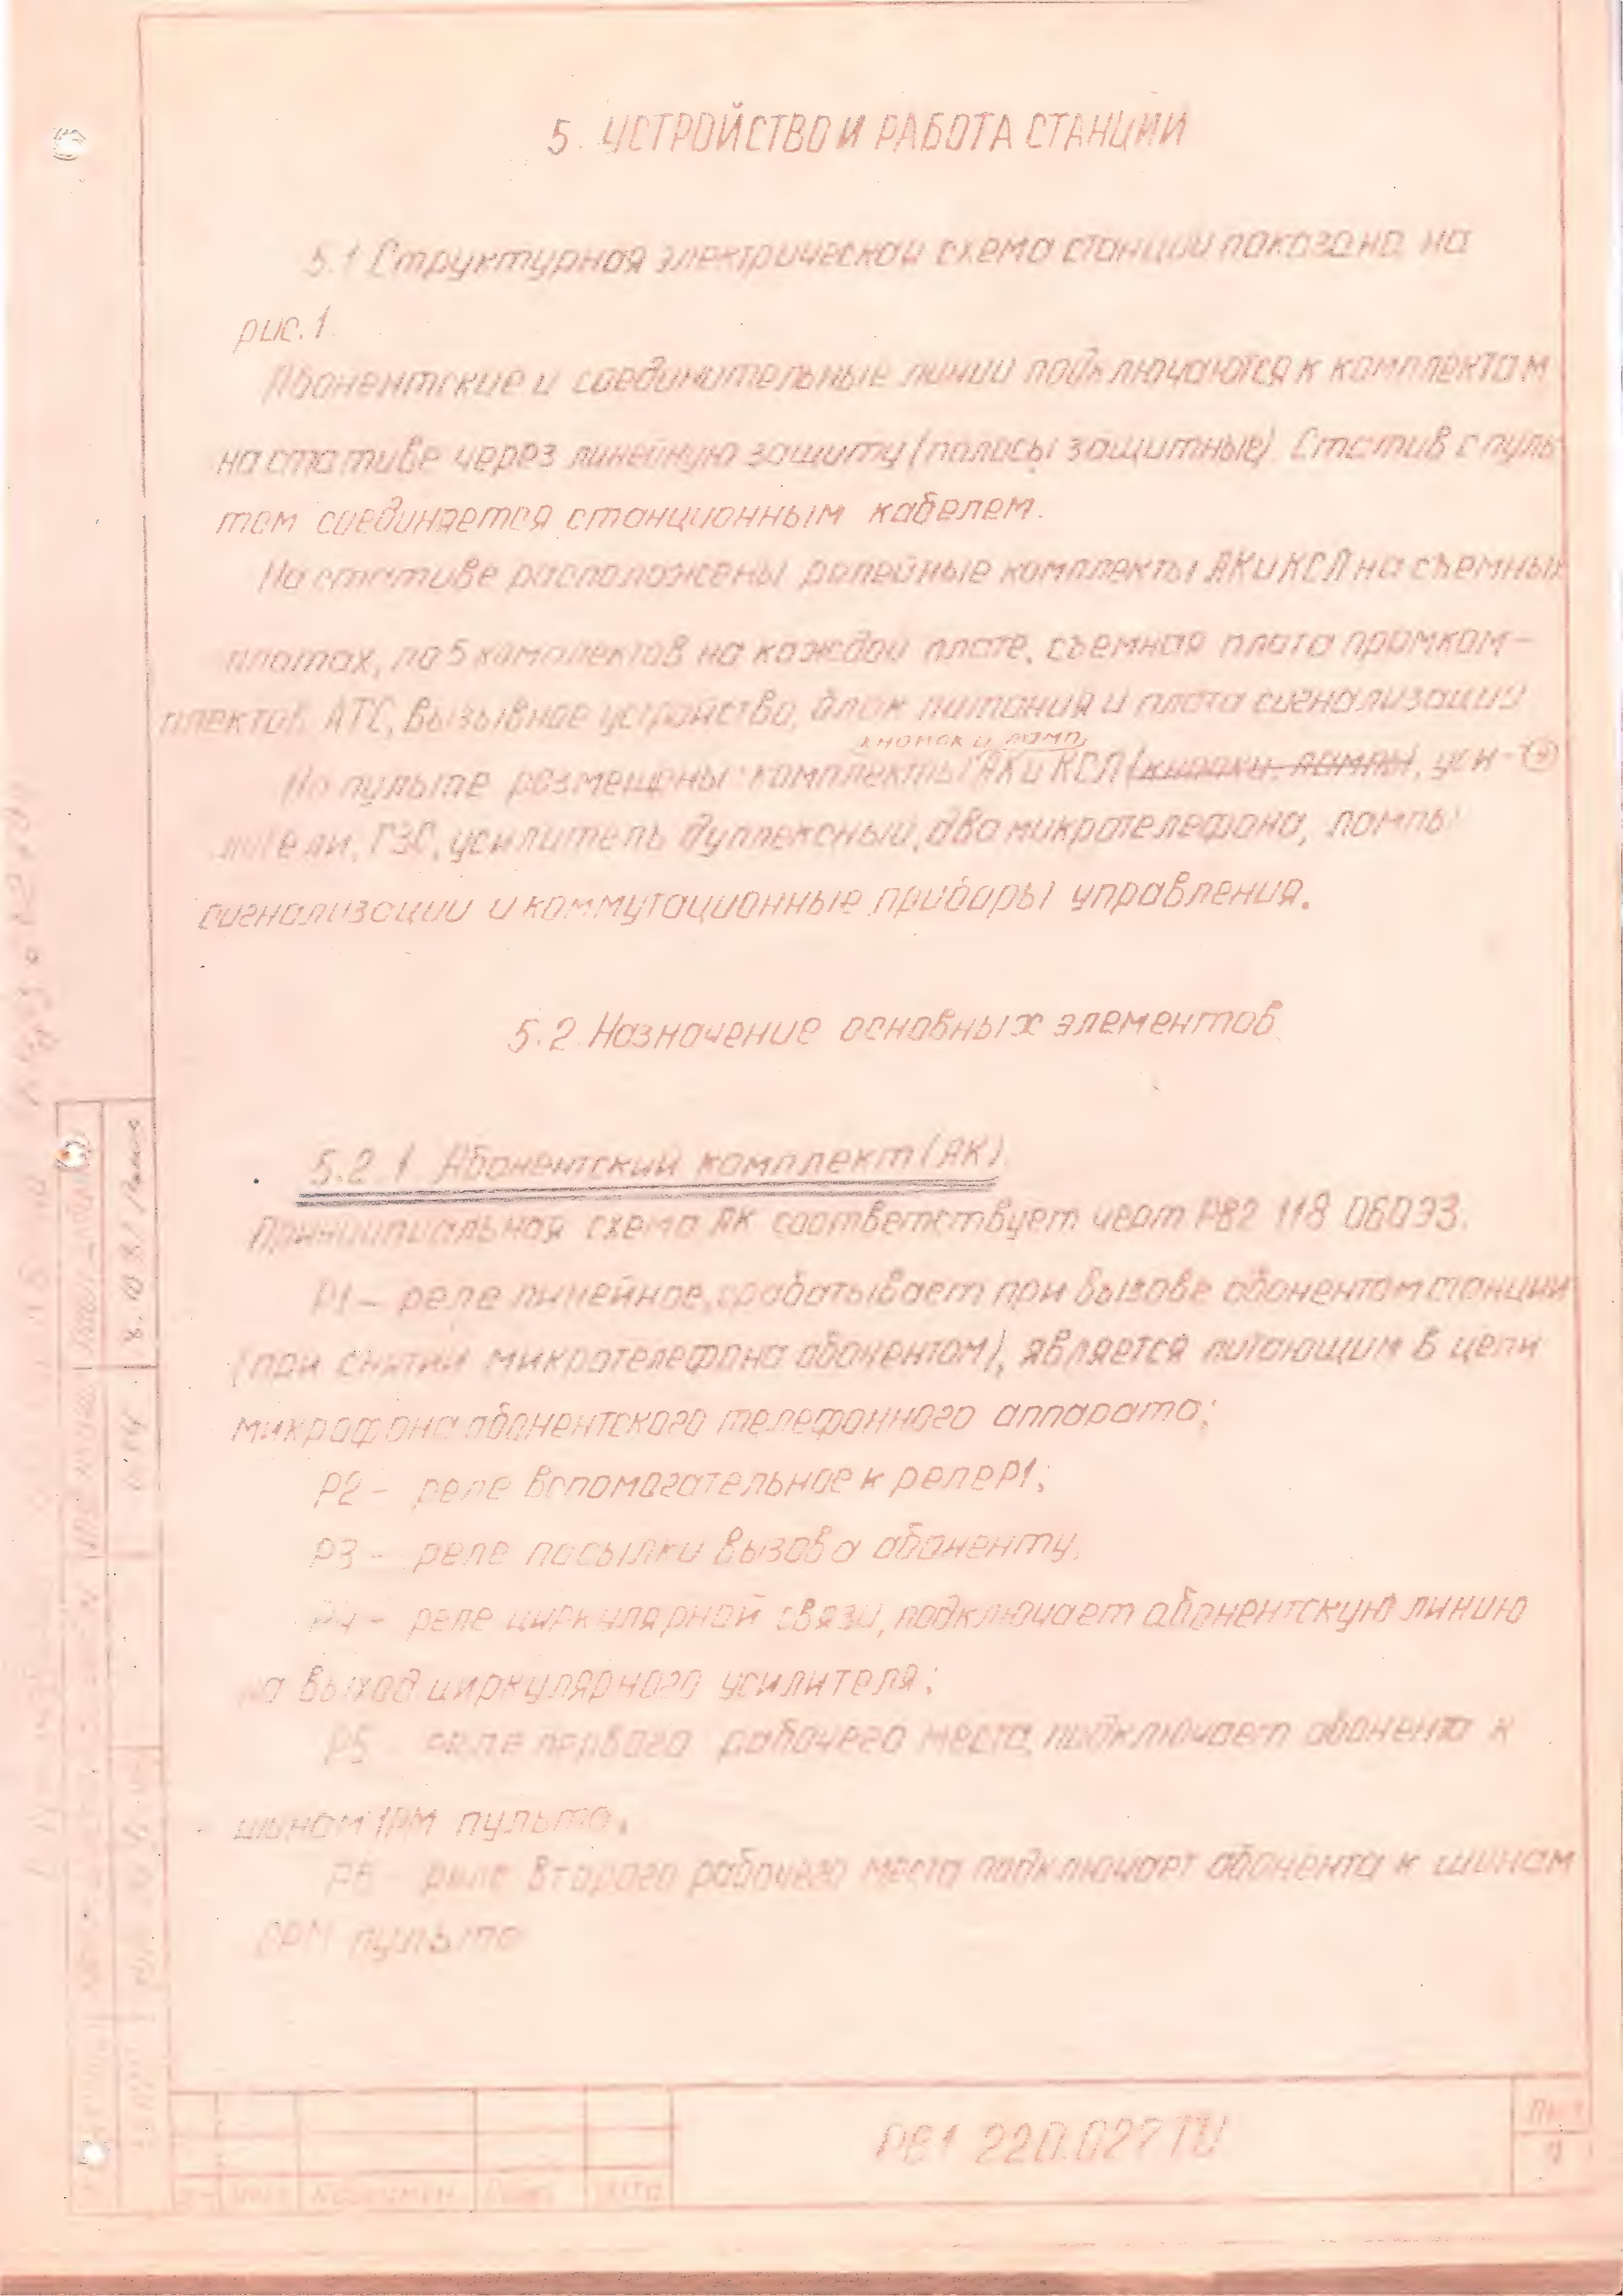 5. УСТРОЙСТВО И РАБОТА СТАНЦИИ
5.1 Структурная электрической схема станции показана на
рис.1.
Абонентские и соединительные линии подключаются к комплектам
на стативе через линейную защиту (полосы защитные). Статив с пуль
том соединяется станционным кабелем.
На стативе расположены релейные комплекты АК и КСЛ на съемных
платах, по 5 комплектов на каждой плате, съемная плата промком-
плектов АТС, вызывное устройство, блок питания и плата сигнализации
кнопок и ламп,
На пульте размещены: комплекты АК и КСЛ (кнопки, лампы), уси-
лители, ГЗС, усилитель дуплексный, два микротелефона, лампы
сигнализации и коммутационные приборы управления.
5.2. Назначение основных элементов
5.2.1 Абонентский комплект (АК).
Принципиальная схема АК соответствует черт. РВ2 118 060ЭЗ.
Р1 – реле линейное, срабатывает при вызове абонентом станции
(при снятии микротелефона абонентом), является питающим в цепи
микрофона абонентского телефонного аппарата;
Р2 – реле вспомогательное к реле Р1;
Р3 – реле посылки вызова абоненту.
Р4 – реле циркулярной связи, подключает абонентскую линию
на выход циркулярного усилителя;
Р5 – реле первого рабочего места, подключает абонента к
шинам 1РМ пульта.
Р6 – реле второго рабочего места подключает абонента к шинам
2РМ пульта
РВ1 220.027 ТО
Лист